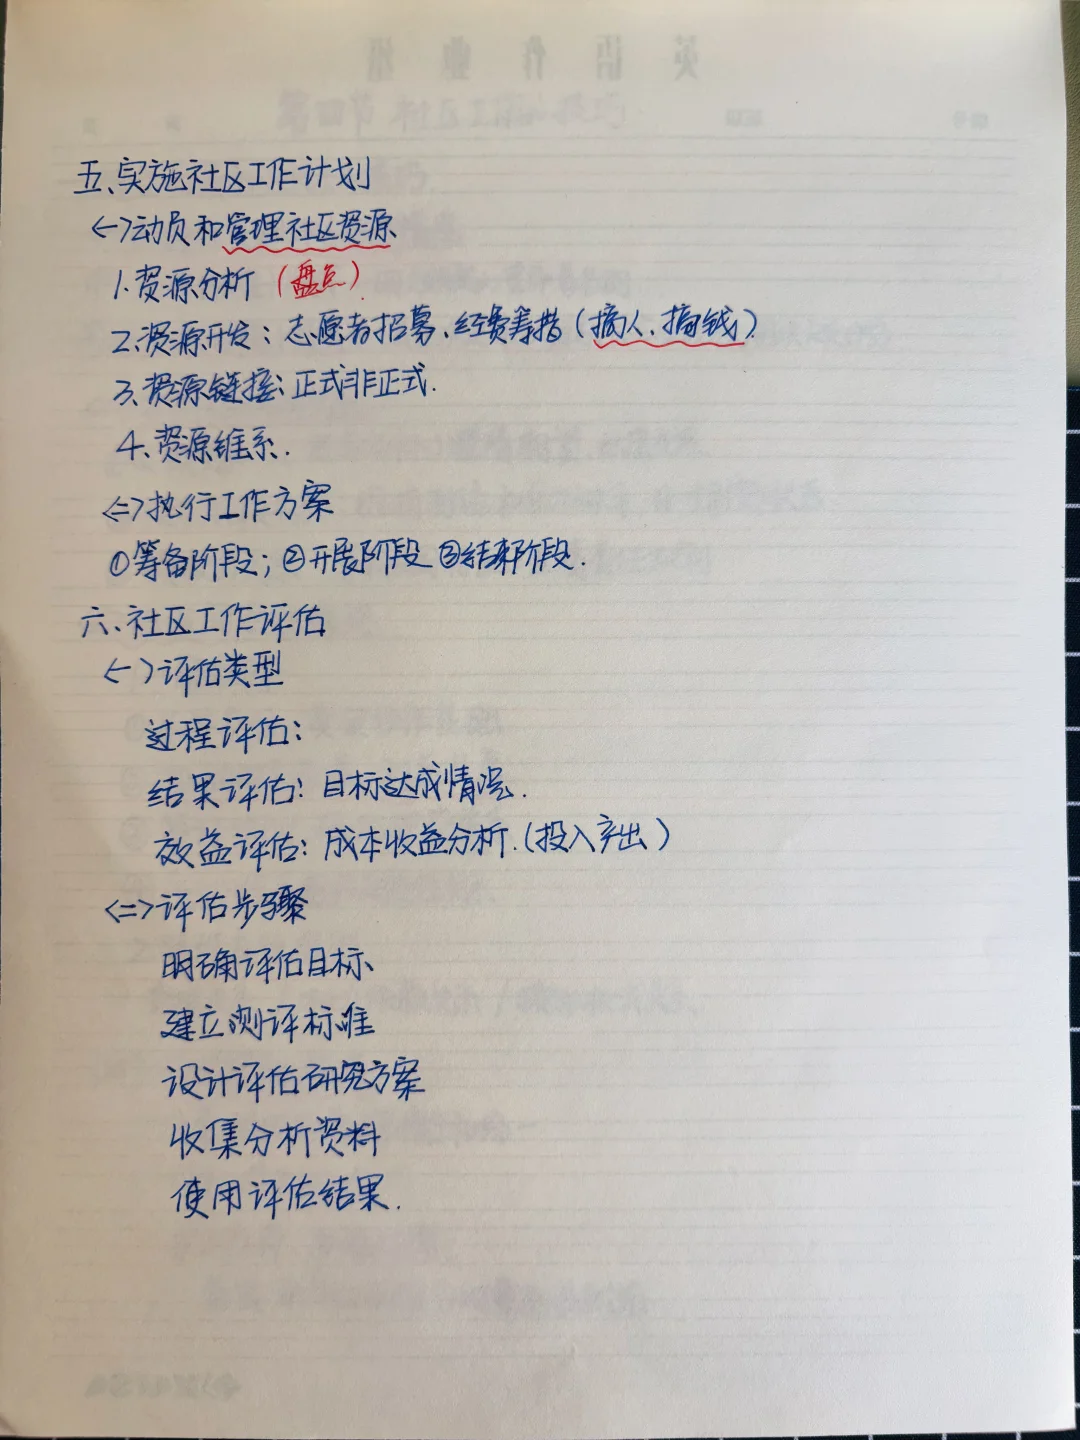 五、实施社区工作计划
<一>动员和管理社区资源
1.资源分析（盘点）
2.资源开发：志愿者招募、经费筹措（搞人、搞钱）
3.资源链接：正式非正式.
4.资源维系.
<二>执行工作方案
①筹备阶段；②开展阶段 ③结束阶段.
六、社区工作评估
<一>评估类型
过程评估：
结果评估：目标达成情况.
效益评估：成本收益分析.（投入产出）
<二>评估步骤
明确评估目标、
建立测评标准
设计评估研究方案
收集分析资料
使用评估结果.